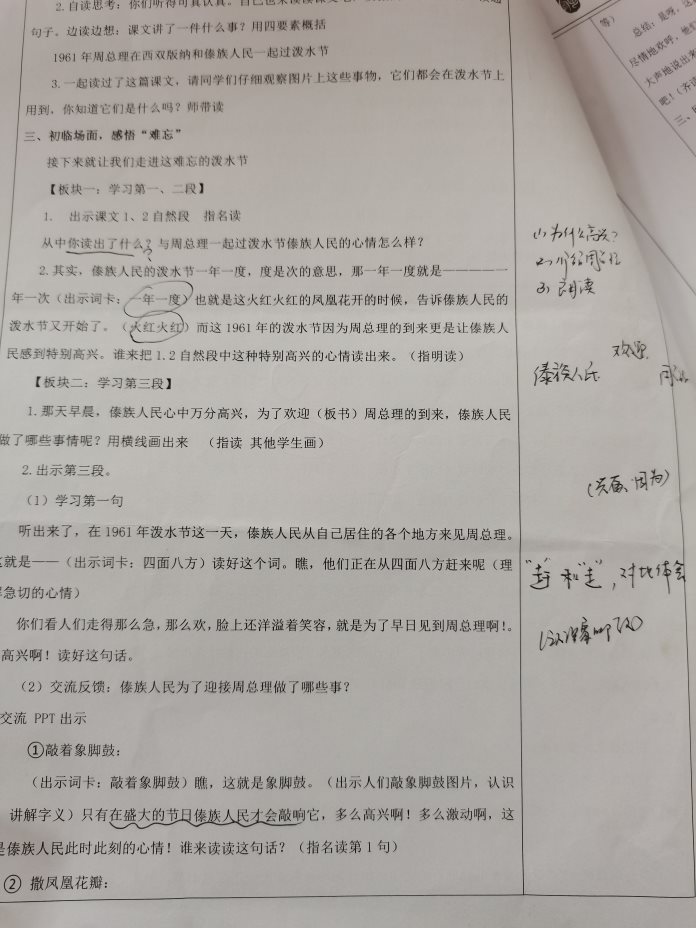 2.自读思考：你们听得可真认真。自己也来读读课文吧
句子。边读边想：课文讲了一件什么事？用四要素概括
1961年周总理在西双版纳和傣族人民一起过泼水节
3.一起读过了这篇课文，请同学们仔细观察图片上这些事物，它们都会在泼水节上
用到，你知道它们是什么吗？师带读
三、初临场面，感悟“难忘”
接下来就让我们走进这难忘的泼水节
【板块一：学习第一、二段】
1. 出示课文1、2自然段 指名读
从中你读出了什么？与周总理一起过泼水节傣族人民的心情怎么样？
2.其实，傣族人民的泼水节一年一度，度是次的意思，那一年一度就是————一
年一次（出示词卡：一年一度）也就是这火红火红的凤凰花开的时候，告诉傣族人民的
泼水节又开始了。（火红火红）而这1961年的泼水节因为周总理的到来更是让傣族人
民感到特别高兴。谁来把1.2自然段中这种特别高兴的心情读出来。（指明读）
【板块二：学习第三段】
1.那天早晨，傣族人民心中万分高兴，为了欢迎（板书）周总理的到来，傣族人民
做了哪些事情呢？用横线画出来 （指读 其他学生画）
2.出示第三段。
（1）学习第一句
听出来了，在1961年泼水节这一天，傣族人民从自己居住的各个地方来见周总理。
这就是——（出示词卡：四面八方）读好这个词。瞧，他们正在从四面八方赶来呢（理
急切的心情）
你们看人们走得那么急，那么欢，脸上还洋溢着笑容，就是为了早日见到周总理啊！。
高兴啊！读好这句话。
（2）交流反馈：傣族人民为了迎接周总理做了哪些事？
交流 PPT出示
①敲着象脚鼓：
（出示词卡：敲着象脚鼓）瞧，这就是象脚鼓。（出示人们敲象脚鼓图片，认识
讲解字义）只有在盛大的节日傣族人民才会敲响它，多么高兴啊！多么激动啊，这
是傣族人民此时此刻的心情！谁来读读这句话？（指名读第1句）
② 撒凤凰花瓣：
(1) 为什么高兴？
(3) 朗读
傣族人民
“赶”和“走”，对比体会
等）
总结：是呀，这
尽情地欢呼，他们
大声地说出来
吧！（齐读
三、